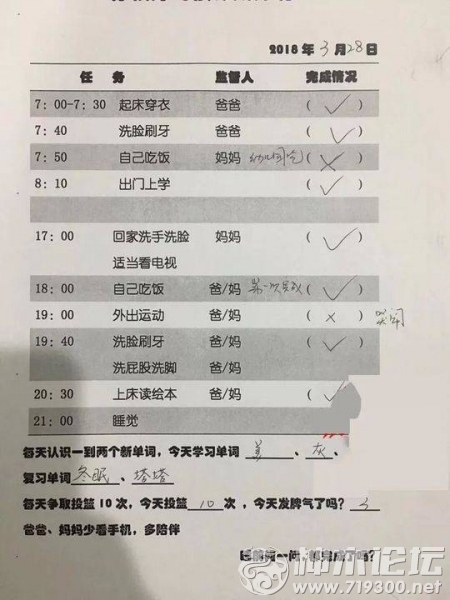 2018 年 3 月 28 日
任 务 监督人 完成情况
7: 00-7: 30 起床穿衣 爸爸 ( ✓ )
7: 40 洗脸刷牙 爸爸 ( ✓ )
7: 50 自己吃饭 妈妈 ( × )
8: 10 出门上学 ( ✓ )
17: 00 回家洗手洗脸 妈妈 ( ✓ )
适当看电视
18: 00 自己吃饭 爸/妈 第一次 ( ✓ )
19: 00 外出运动 爸/妈 ( × ) 哭闹
19: 40 洗脸刷牙 爸/妈 ( ✓ )
洗屁股洗脚
20: 30 上床读绘本 爸/妈 ( ✓
21: 00 睡觉
每天认识一到两个新单词，今天学习单词 姜 、 灰 、
复习单词 冬眠 、 塔塔
每天争取投篮 10 次，今天投篮 10 次 ，今天发脾气了吗？
爸爸、妈妈少看手机，多陪伴
睡前问一问，都完成了吗？
神木论坛
www.719300.net